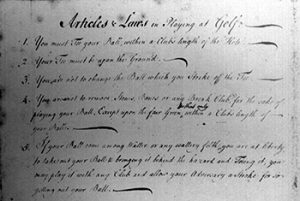 Articles & Laws in Playing at Golf.
1. You must Tee your Ball, within a Club's length of the Hole.
2. Your Tee must be upon the Ground.
3. You are not to change the Ball which you Stroke off the Tee.
4. You are not to remove Stones, Bones or any Break Club, for the sake of
playing your Ball, Except upon the fair Green, & that only within a Club's length of
your Ball.
5. If your Ball come among Watter, or any wattery filth, you are at liberty
to take out your Ball & bringing it behind the hazard and Teeing it, you
may play it with any Club and allow your Adversary a Stroke for so
getting out your Ball.